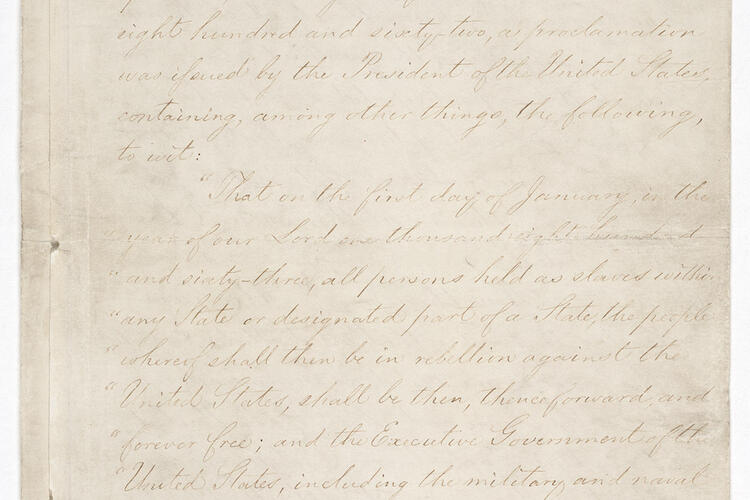 eight hundred and sixty-two, a proclamation
was issued by the President of the United States,
containing, among other things, the following,
to wit:
"That on the first day of January, in the
"year of our Lord one thousand eight hundred
"and sixty-three, all persons held as slaves within
"any State or designated part of a State, the people
"whereof shall then be in rebellion against the
"United States, shall be then, thenceforward, and
"forever free; and the Executive Government of the
"United States, including the military and naval